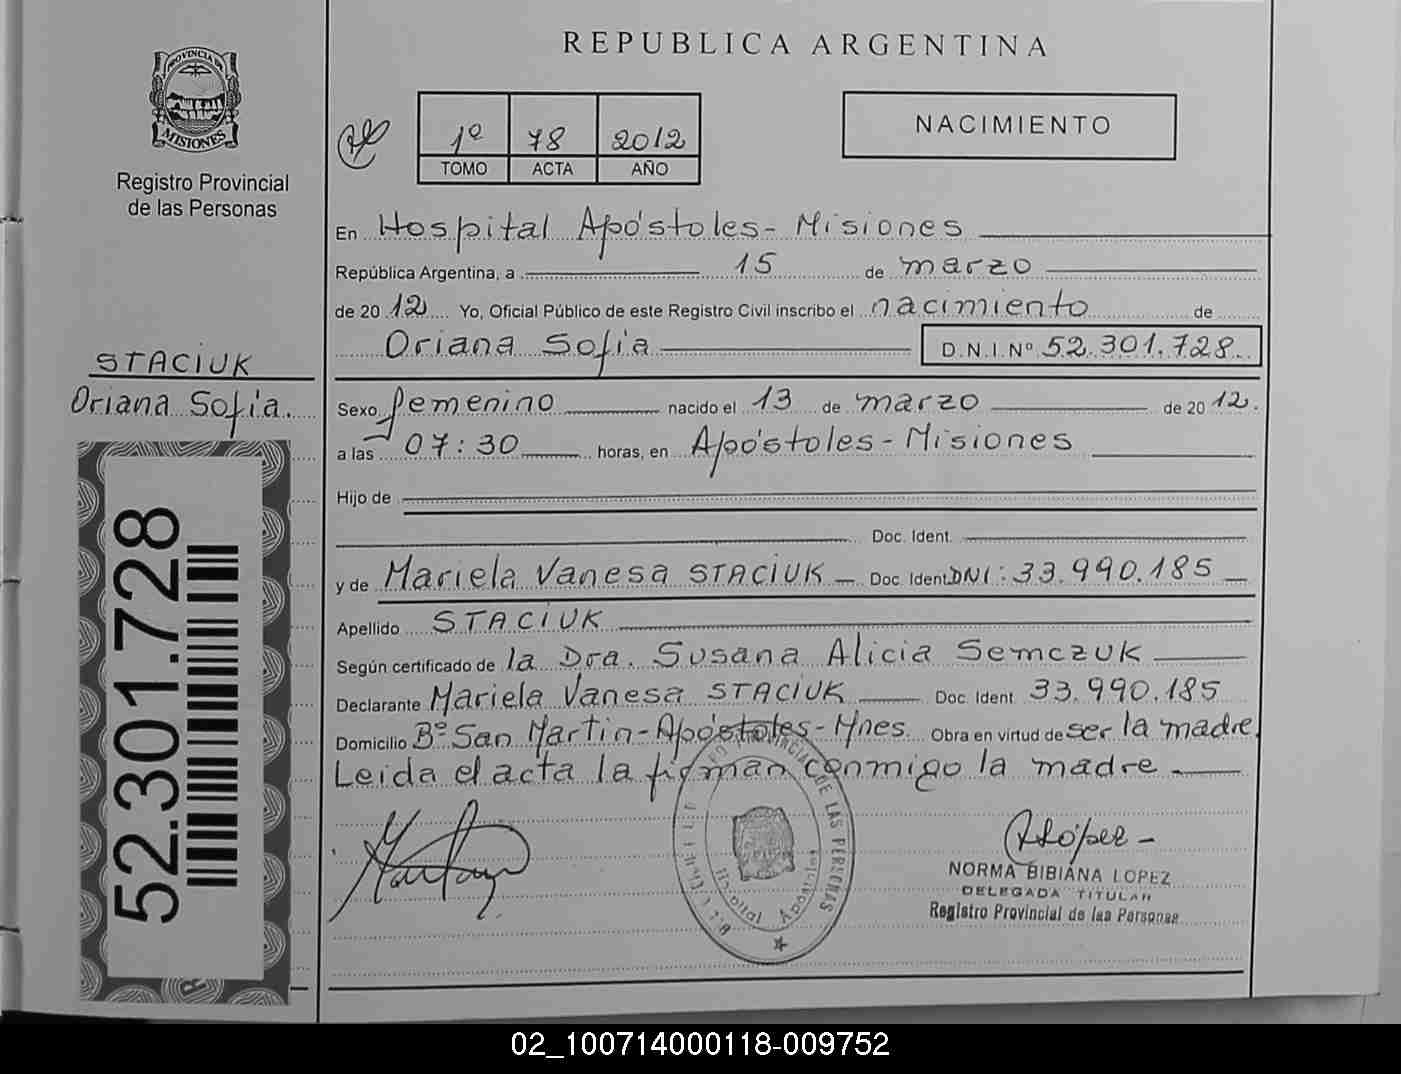 PROVINCIA DE
MISIONES
Registro Provincial
de las Personas
STACIUK
Oriana Sofia.
52.301.728
REPUBLICA ARGENTINA
1º 78 2012
TOMO ACTA AÑO
NACIMIENTO
En Hospital Apóstoles - Misiones
República Argentina, a 15 de marzo
de 2012 Yo, Oficial Público de este Registro Civil inscribo el nacimiento de
Oriana Sofia D.N.I. Nº 52.301.728
Sexo femenino nacido el 13 de marzo de 2012.
a las 07:30 horas, en Apóstoles - Misiones
Hijo de
Doc. Ident.
y de Mariela Vanesa STACIUK Doc. Ident. DNI: 33.990.185
Apellido STACIUK
Según certificado de la Dra. Susana Alicia Semczuk
Declarante Mariela Vanesa STACIUK Doc. Ident 33.990.185
Domicilio Bº San Martin - Apóstoles - Mnes. Obra en virtud de ser la madre.
Leida el acta la firman conmigo la madre
PROVINCIAL DE LAS PERSONAS
Hospital Apóstoles
RLópez
NORMA BIBIANA LOPEZ
DELEGADA TITULAR
Registro Provincial de las Personas
02_100714000118-009752